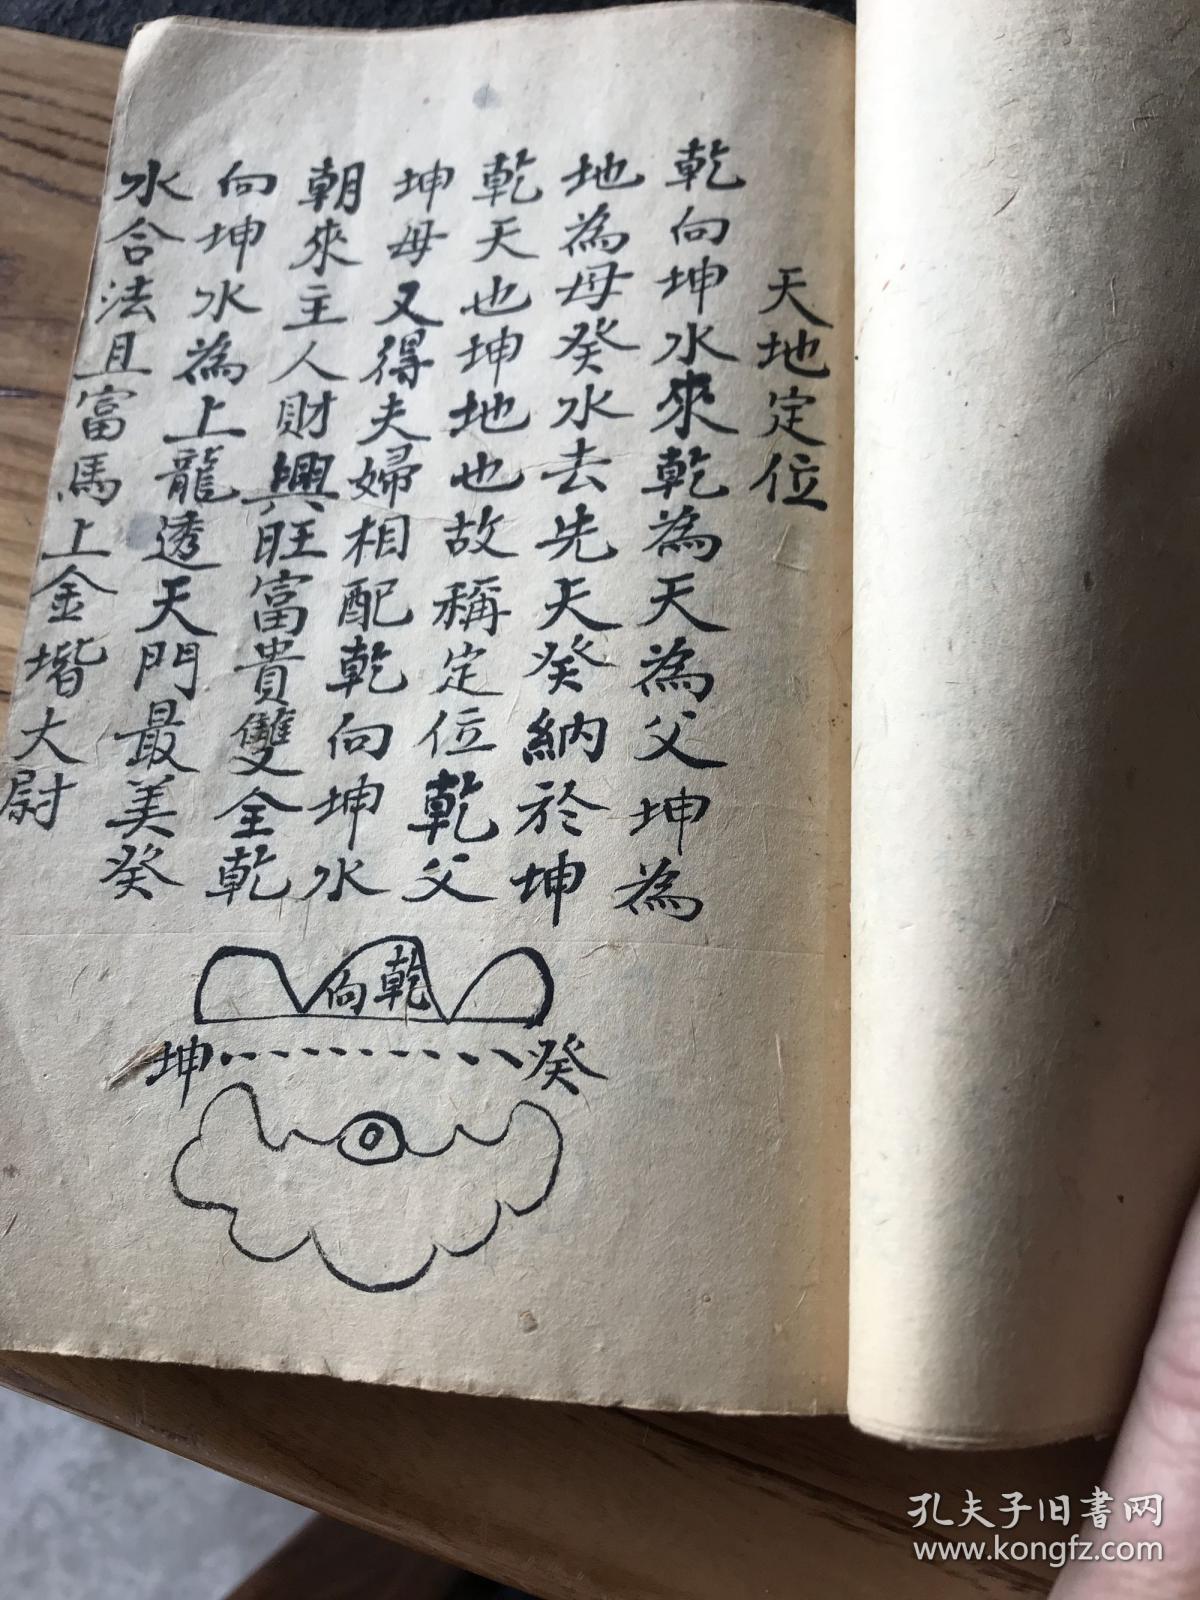 天地定位
乾向坤水來乾為天為父坤為
地為母癸水去先天癸納於坤
乾天也坤地也故稱定位乾父
坤母又得夫婦相配乾向坤水
朝來主人財興旺富貴雙全乾
向坤水為上龍透天門最美癸
水合法且富馬上金堦大尉
乾向
坤
癸
孔夫子旧書网
www.kongfz.com